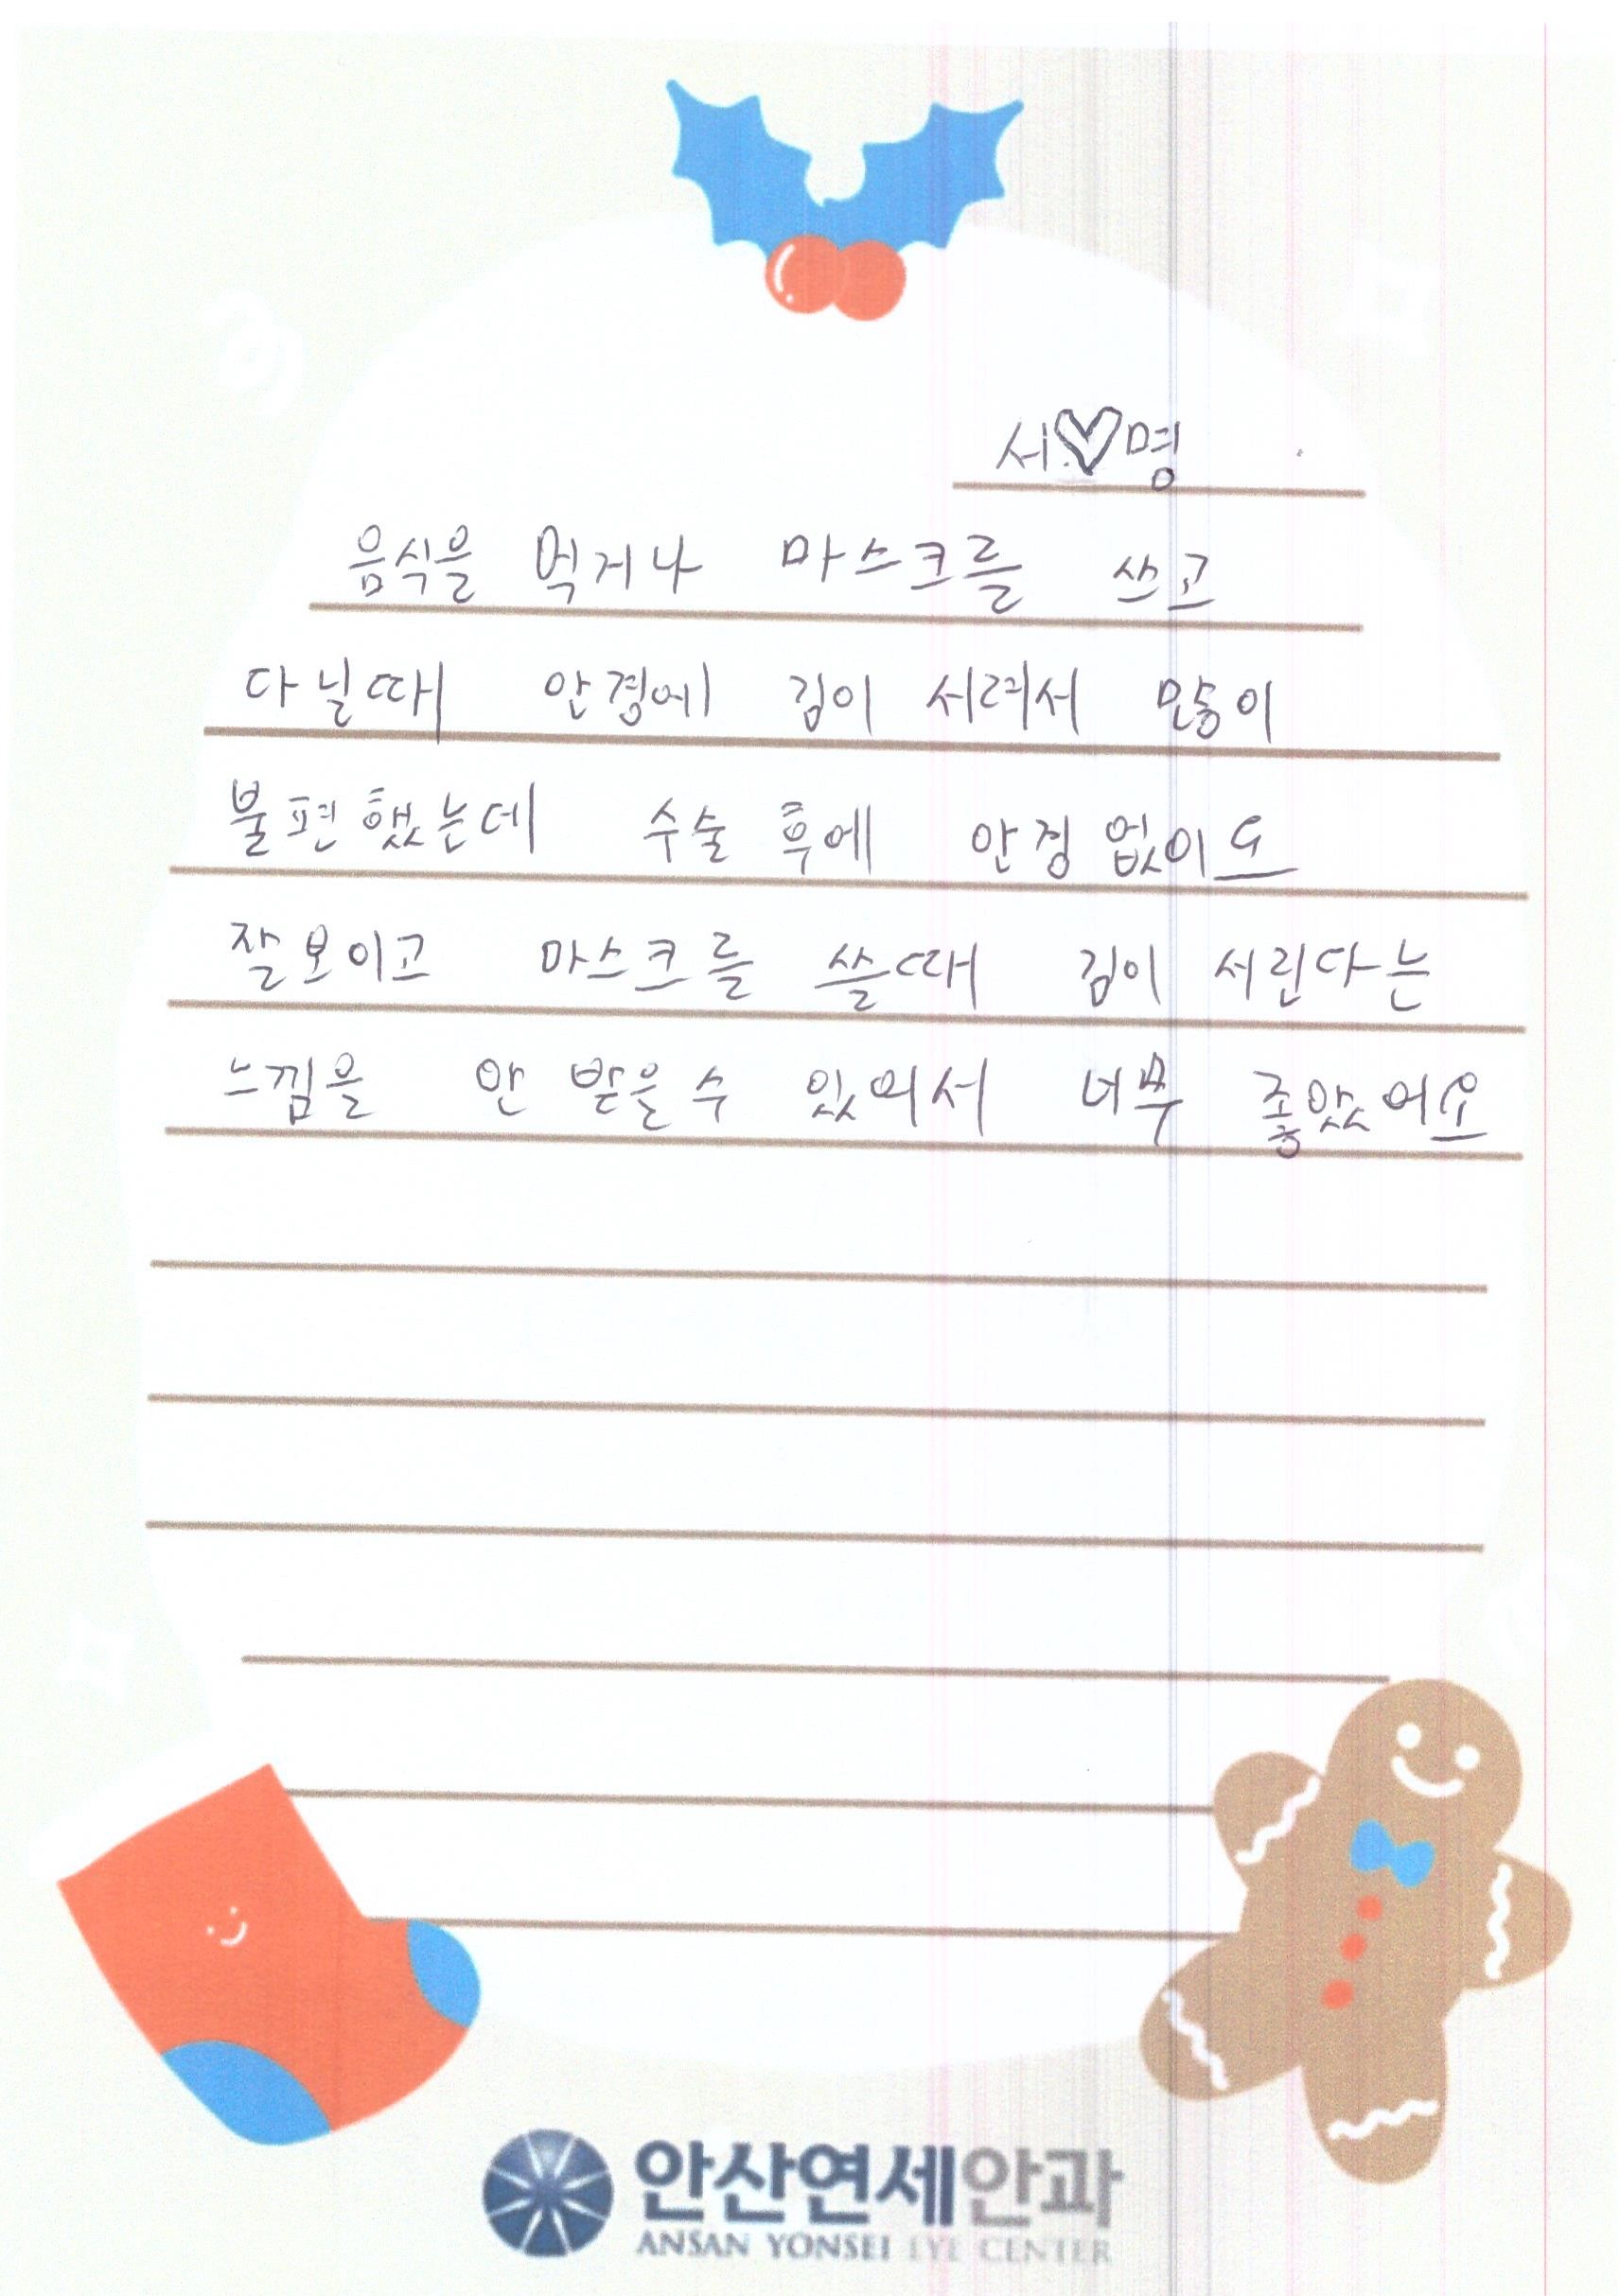 서♡명
음식을 먹거나 마스크를 쓰고
다닐때 안경에 김이 서려서 많이
불편했는데 수술 후에 안경 없이도
잘보이고 마스크를 쓸때 김이 서린다는
느낌을 안 받을 수 있어서 너무 좋았어요
안산연세안과
ANSAN YONSEI EYE CENTER